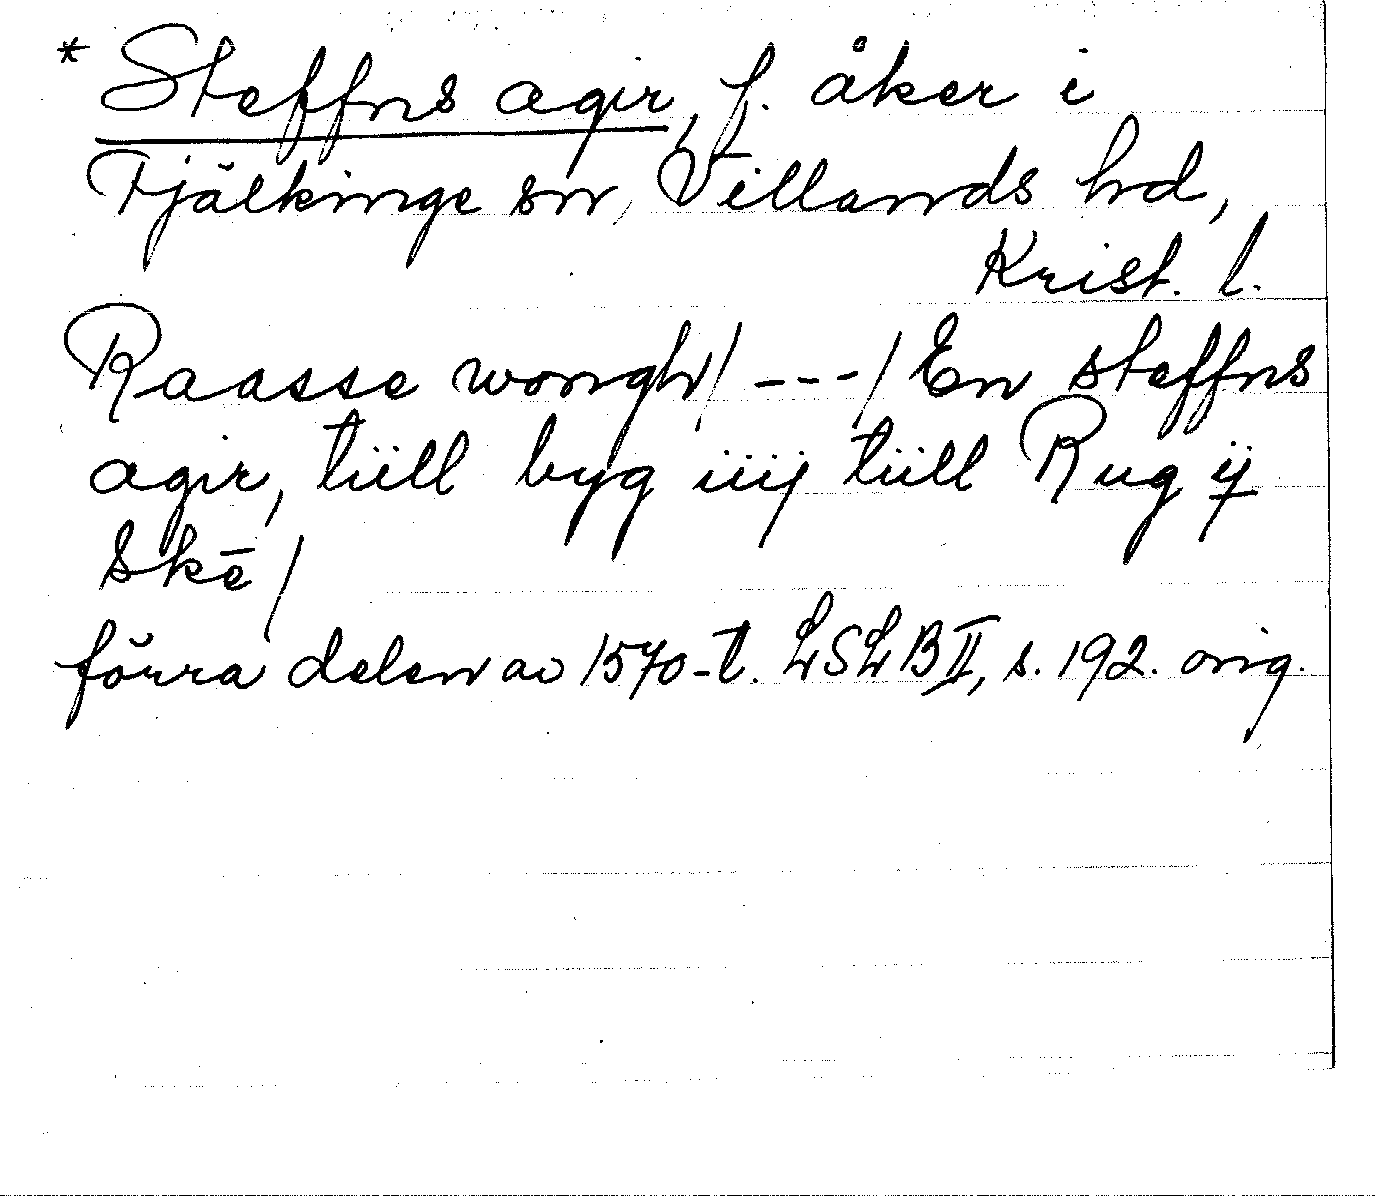 * Steffns agir, f. åker i
Fjälkinge sn, Villands hd,
Krist. l.
Raasse wongh/ ---/ En steffns
agir, tiill byg iiij tiill Rug ij
skē/
förra delen av 1570-t. LSLB II, s. 192. orig.